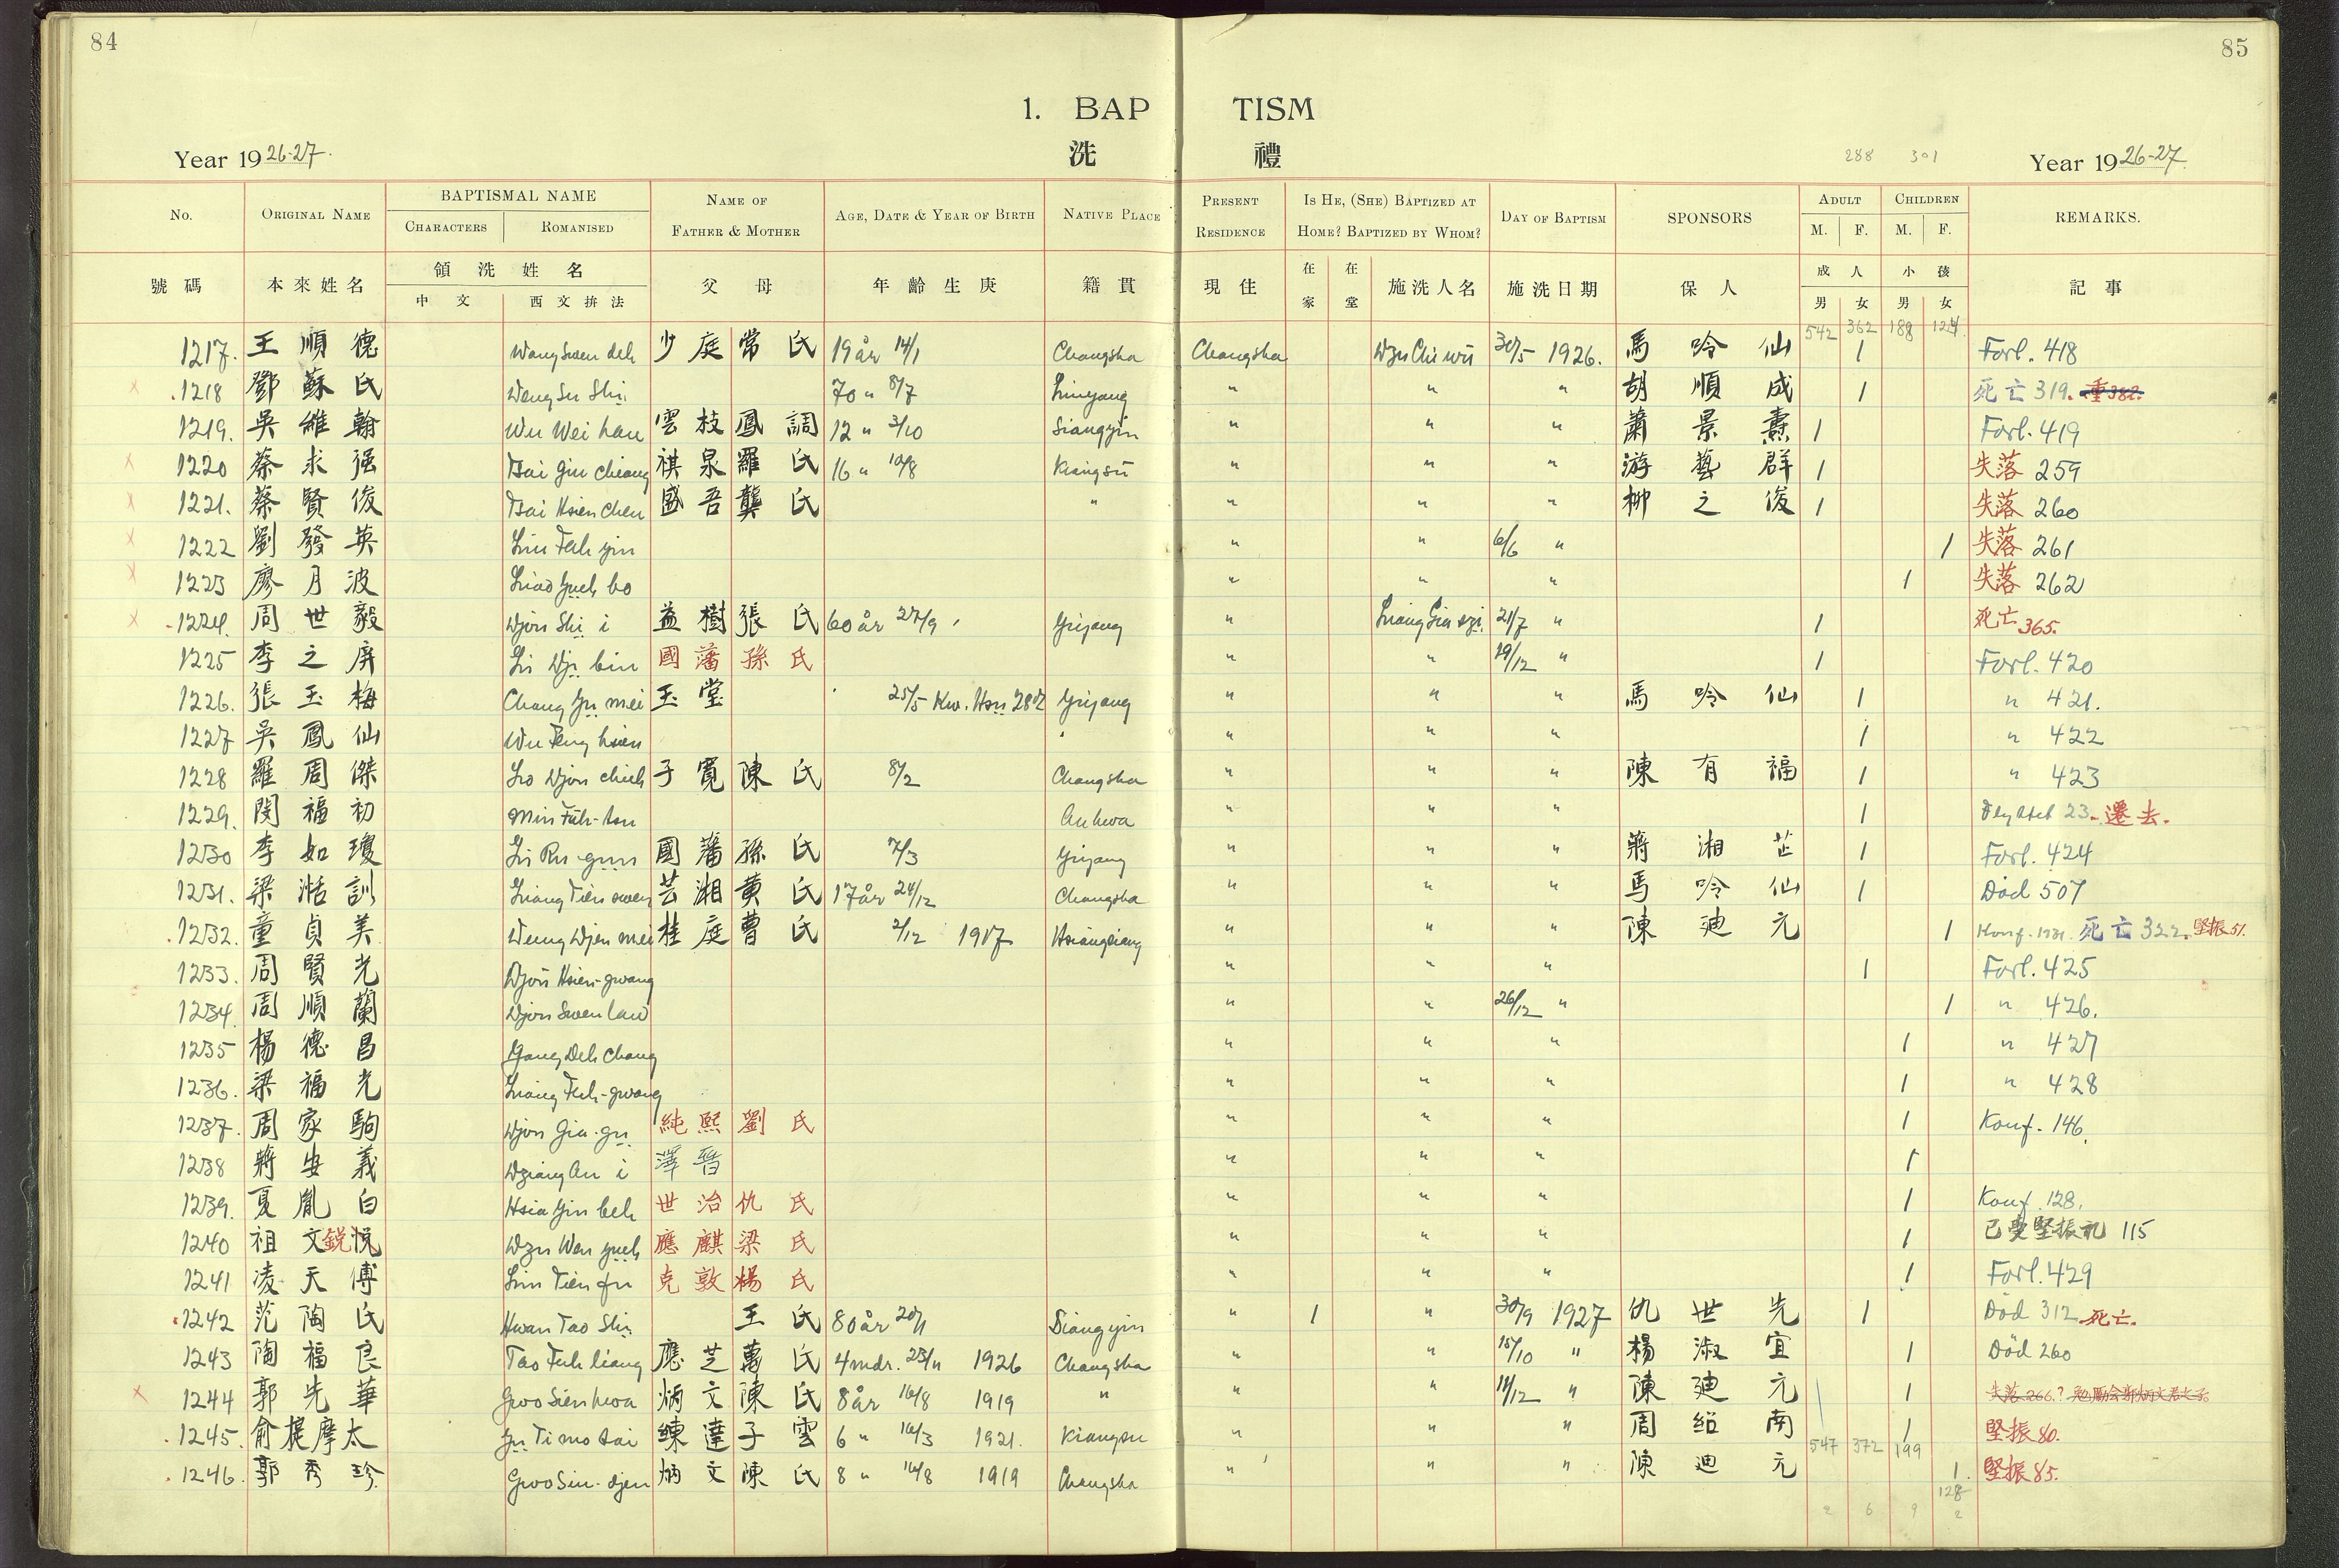 84
85
1. BAP TISM
Year 1926-27.
洗 禮
288 301
Year 1926-27.
No. ORIGINAL NAME BAPTISMAL NAME NAME OF FATHER & MOTHER AGE, DATE & YEAR OF BIRTH NATIVE PLACE PRESENT RESIDENCE IS HE, (SHE) BAPTIZED AT HOME? BAPTIZED BY WHOM? DAY OF BAPTISM SPONSORS ADULT CHILDREN REMARKS.
CHARACTERS ROMANISED M. F. M. F.
號碼 本來姓名 領洗姓名 父母 年齡生庚 籍貫 現住 在家 在堂 施洗人名 施洗日期 保人 成人 小孩 記事
中文 西文拚法 男 女 男 女
542 362 188 124
1217. 王順德 Wang Swen deh 少庭 常氏 19 år 14/1 Changsha Changsha Dzu Chi wu 30/5 1926. 馬吟仙 1 Forl. 418
1218 鄧蘇氏 Deng Su Shi 70 " 8/7 Liuyang " " " 胡順成 1 死亡 319. 重382.
1219. 吳維翰 Wu Wei han 雲枝 鳳調 12 " 3/10 Siangyin " " " 蕭景燾 1 Forl. 419
1220 蔡求强 Tsai Giu chiang 祺泉 羅氏 16 " 10/8 Kiangsu " " " 游藝群 1 失落 259
1221. 蔡賢俊 Tsai Hsien chen 盛吾 龔氏 " " " " 柳之俊 1 失落 260
1222 劉發英 Liu Fah yin " " 6/6 " 1 失落 261
1223 廖月波 Liao Yueh bo " " " 1 失落 262
1224. 周世毅 Djou Shi i 益樹 張氏 60 år 27/9 Yiyang " Liang Gia szi 21/7 " 1 死亡 365.
1225 李之屏 Li Dji bin 國藩 孫氏 " " 19/12 " 1 Forl. 420
1226. 張玉梅 Chang Yu mei 玉堂 25/5 Kw. Hsu 28 Yiyang " " " 馬吟仙 1 " 421.
1227 吳鳳仙 Wu Feng hsien " " " 1 " 422
1228 羅周傑 Lo Djou chieh 子寬 陳氏 8/2 Changsha " " " 陳有福 1 " 423
1229. 閔福初 Min Fuh-tsu Anhwa " " " 1 Flyttet 23. 遷去.
1230 李如瓊 Li Ru-giun 國藩 孫氏 7/3 Yiyang " " " 蔣湘芷 1 Forl. 424
1231. 梁湉訓 Liang Tien swen 芸湘 黄氏 17 år 24/12 Changsha " " " 馬吟仙 1 Död 507
1232. 童貞美 Deung Djen mei 桂庭 曹氏 2/12 1917 Hsianghsiang " " " 陳廸元 1 Konf. 1931. 死亡 322. 堅振 51.
1233. 周賢光 Djou Hsien-gwang " " " 1 Forl. 425
1234. 周順蘭 Djou Swen lan " " 26/12 " 1 " 426.
1235 楊德昌 Yang Deh chang " " " 1 " 427
1236. 梁福光 Liang Fuh-gwang " " " 1 " 428
1237. 周家駒 Djou Gia-gu 純熙 劉氏 " " " 1 Konf. 146.
1238 蔣安義 Dziang An i 澤晋 " " " 1
1239. 夏胤白 Hsia Yin beh 世治 仇氏 " " " 1 Konf. 128.
1240 祖文銳悅 Dzu Wen yueh 應麒 梁氏 " " " 1 已受堅振礼 115
1241 凌天傅 Lin Tien fu 克敦 楊氏 " " " 1 Forl. 429
1242 范陶氏 Hwan Tao Shi 王氏 80 år 20/1 Siangyin " 1 " 30/9 1927 仇世先 1 Död 312 死亡.
1243 陶福良 Tao Fuh liang 應芝 萬氏 4 mdr. 23/11 1926 Changsha " " 15/10 " 楊淑宜 1 Död 260
1244 郭先華 Gwo Sien hwa 炳文 陳氏 8 år 16/8 1919 " " " 11/12 " 陳廸元 1 失落 266?
1245. 俞提摩太 Yu Ti mo tai 練達 子雲 6 " 16/3 1921. Kiangsu " " " 周紹南 1 堅振 80.
547 372 199
1246. 郭秀珍 Gwo Siu-djen 炳文 陳氏 8 " 16/8 1919 Changsha " " " 陳迪元 1. 堅振 85.
128
2 6 9 2